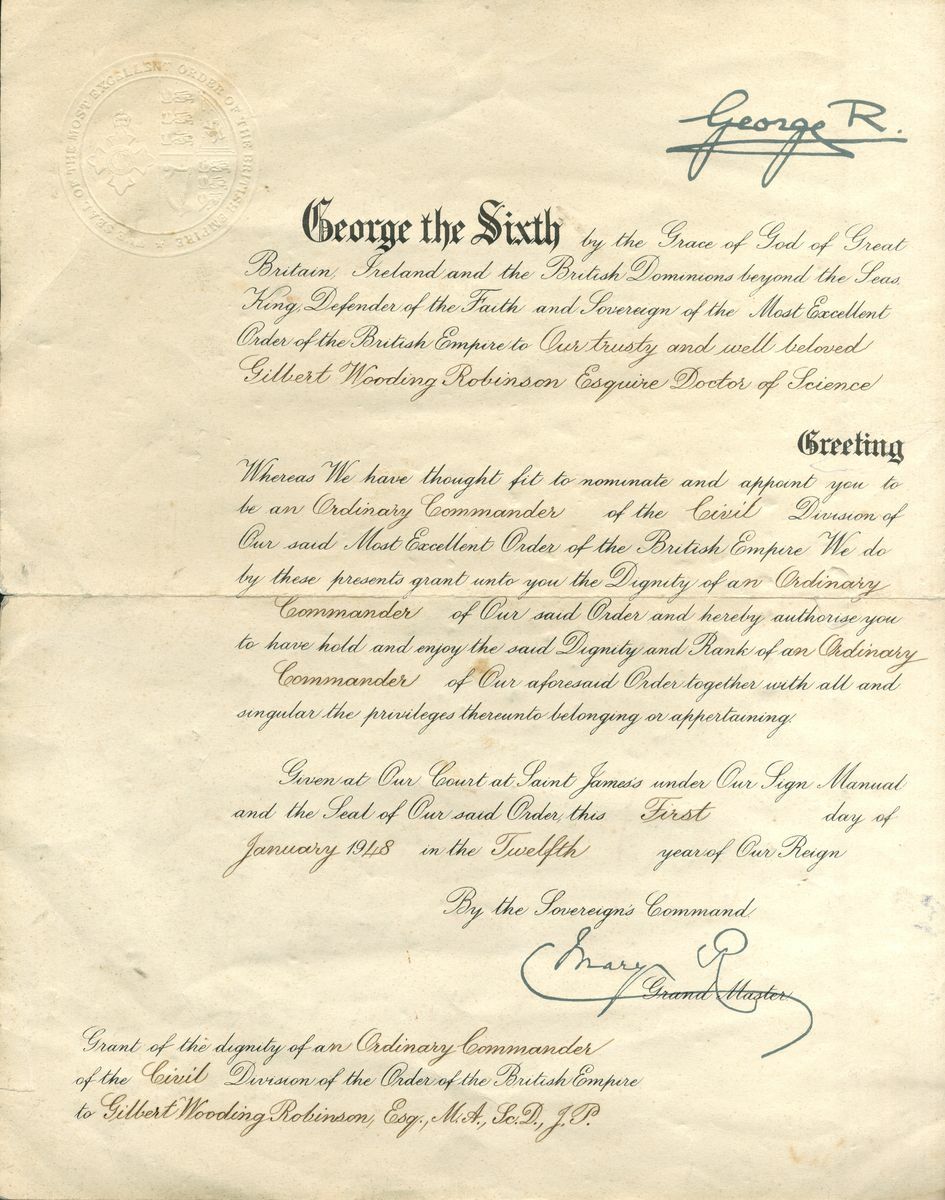 SEAL OF THE MOST EXCELLENT ORDER OF THE BRITISH EMPIRE
George R.
George the Sixth by the Grace of God of Great
Britain, Ireland and the British Dominions beyond the Seas,
King, Defender of the Faith and Sovereign of the Most Excellent
Order of the British Empire to Our trusty and well beloved
Gilbert Wooding Robinson Esquire Doctor of Science
Greeting
Whereas We have thought fit to nominate and appoint you to
be an Ordinary Commander of the Civil Division of
Our said Most Excellent Order of the British Empire We do
by these presents grant unto you the Dignity of an Ordinary
Commander of Our said Order and hereby authorise you
to have hold and enjoy the said Dignity and Rank of an Ordinary
Commander of Our aforesaid Order together with all and
singular the privileges thereunto belonging or appertaining.
Given at Our Court at Saint James's under Our Sign Manual
and the Seal of Our said Order, this First day of
January 1948 in the Twelfth year of Our Reign
By the Sovereign's Command.
Mary R
Grand Master
Grant of the dignity of an Ordinary Commander
of the Civil Division of the Order of the British Empire
to Gilbert Wooding Robinson, Esq., M.A., Sc.D., J.P.